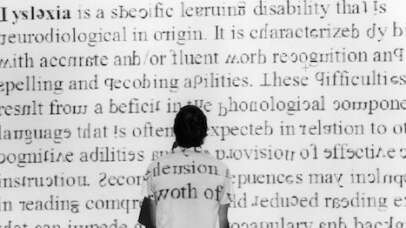 Dyslexia is a sbecific learuing disability thal Is
neurodiological in origin. It is cdaracterizeb dy b
with accurate anb/or fluent word recognition an
spelling and qecobing aqilities. These difficulties
result from a beficit in the phonological compone
language tdat Is often expecteb in relation to ot
cognitive adilities provision of effective c
instruction. Secon quences may inclup
in reading compr d reduced reading ex
tension
woth of